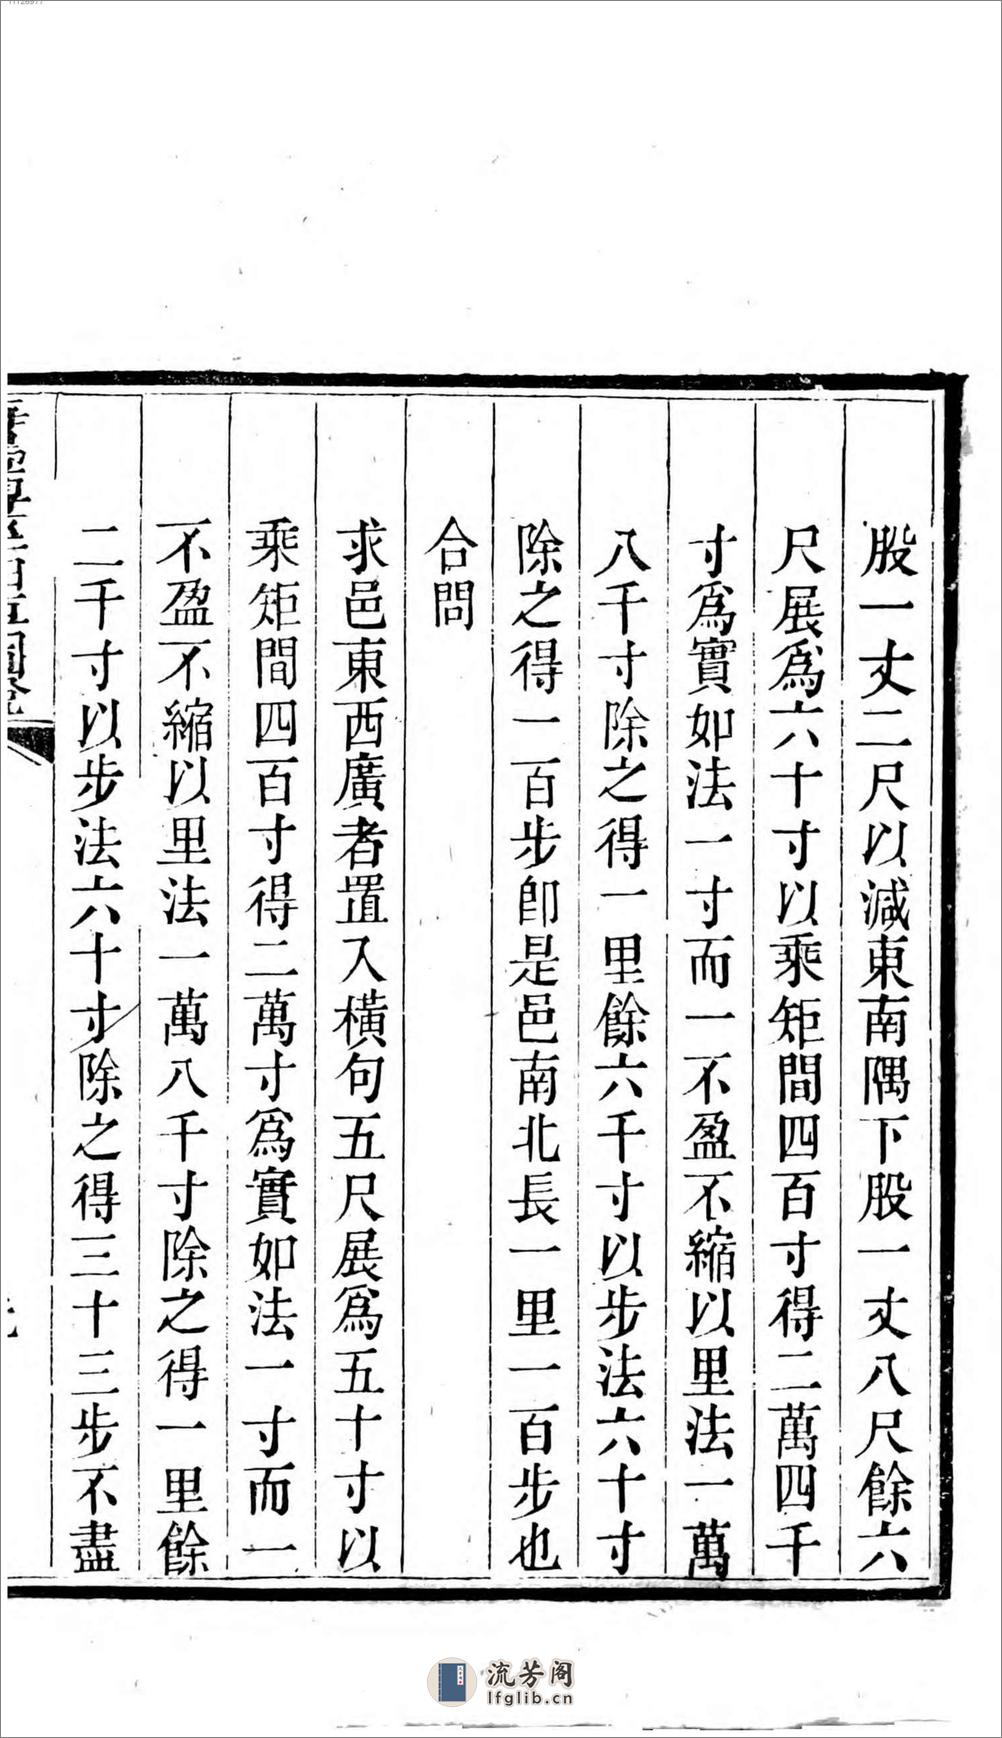 股一丈二尺以減東南隅下股一丈八尺餘六
尺展爲六十寸以乘矩間四百寸得二萬四千
寸爲實如法一寸而一不盈不縮以里法一萬
八千寸除之得一里餘六千寸以步法六十寸
除之得一百步卽是邑南北長一里一百步也
合問
求邑東西廣者置入橫句五尺展爲五十寸以
乘矩間四百寸得二萬寸爲實如法一寸而一
不盈不縮以里法一萬八千寸除之得一里餘
二千寸以步法六十寸除之得三十三步不盡
流芳阁
lfglib.cn